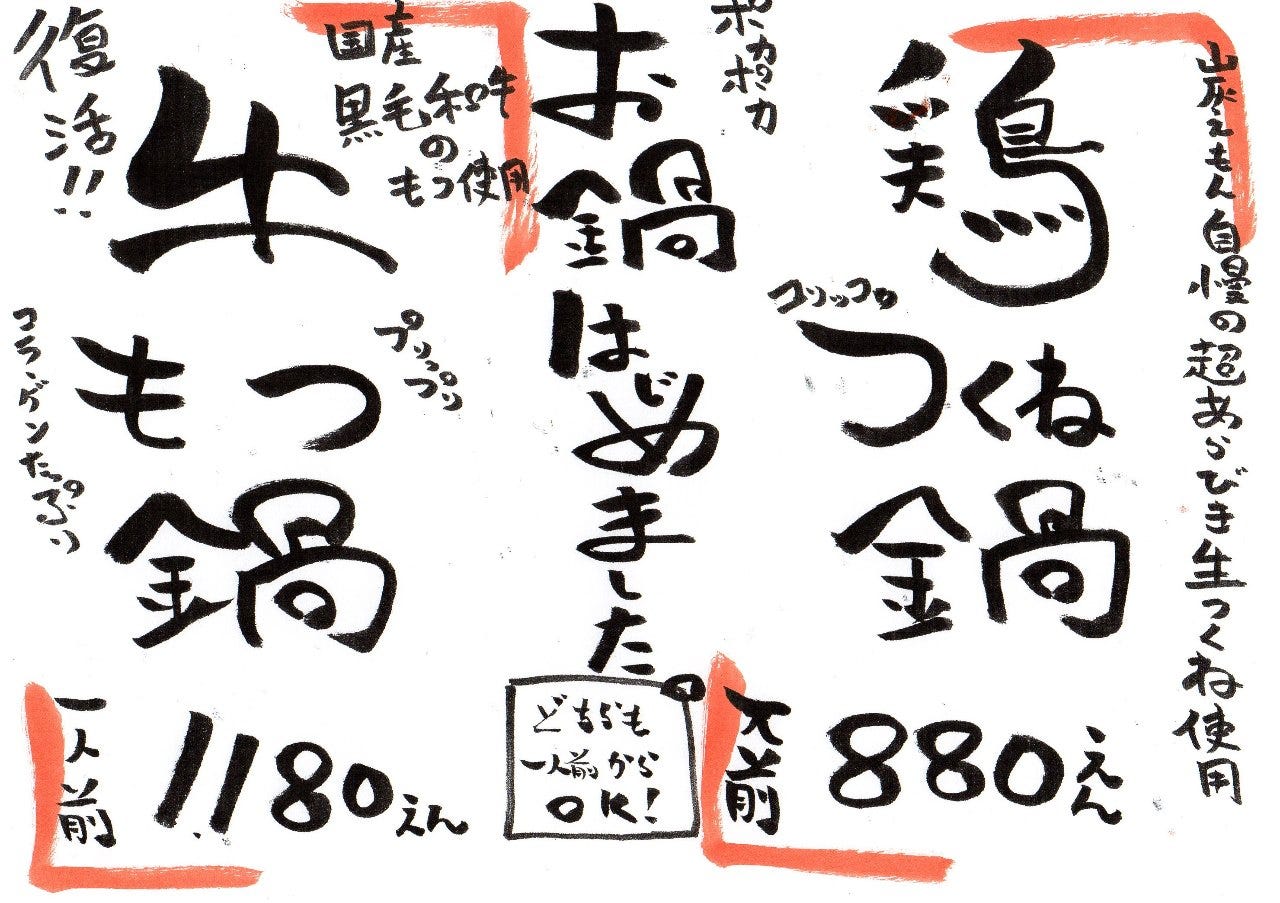 炭えもん自慢の超あらびき生つくね使用
鶏
コリッコリ
つくね
鍋
一人前
880えん
ポカポカ
お鍋はじめました。
どちらも
一人前から
OK!
国産
黒毛和牛
の
もつ使用
復活!!
牛
プリップリ
もつ
鍋
コラーゲンたっぷり
一人前
1,180えん